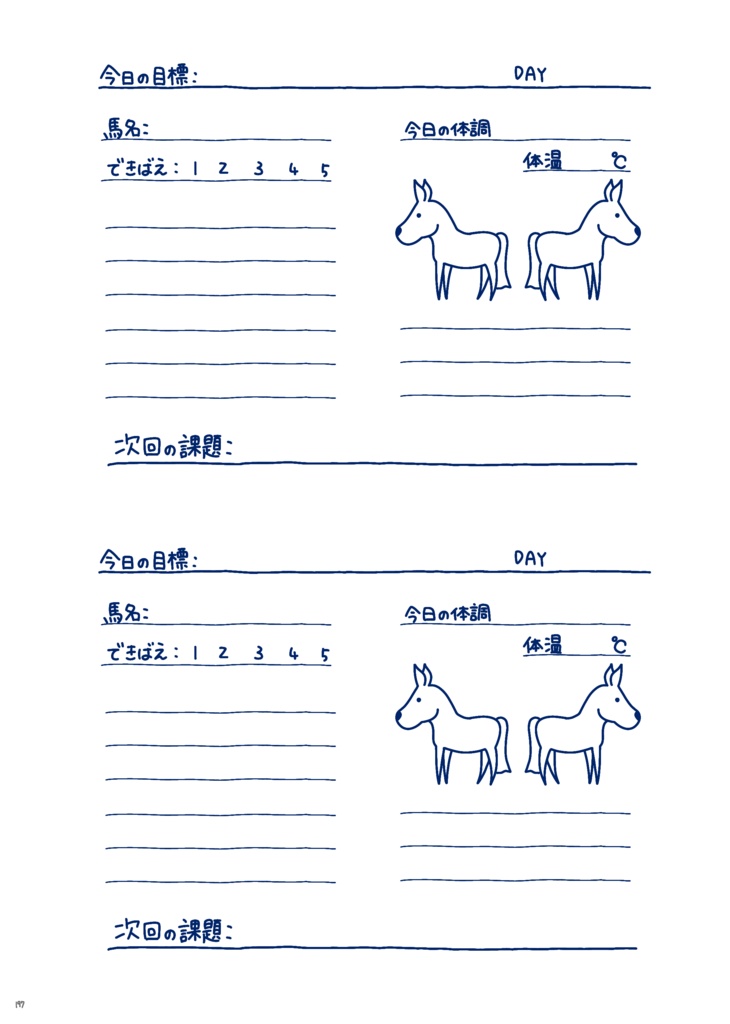 今日の目標: DAY
馬名:
できばえ: 1 2 3 4 5
今日の体調
体温 ℃
次回の課題:
今日の目標: DAY
馬名:
できばえ: 1 2 3 4 5
今日の体調
体温 ℃
次回の課題:
197